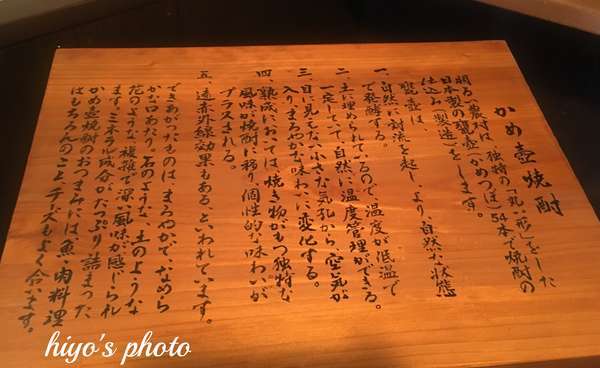 かめ壺焼酎
明るい農村は、独特の「丸い形」をした
日本製の甕壺(かめつぼ)54本で焼酎の
仕込み(製造)をします。
甕壺は、
一、自然に対流を起し、より、自然な状態
で発酵する。
二、土に埋められているので温度が低温で
一定していて、自然に温度管理ができる。
三、目に見えない小さな気孔から空気が
入りまろやかな味わいに変化する。
四、熟成においては焼き物がもつ独特な
風味が焼酎に移り、個性的な味わいが
プラスされる。
五、遠赤外線効果もあるといわれています。
できあがったものは、まろやかで、なめら
かな口あたり、石のような、土のような
花のような複雑で深い風味が感じられ
ます。ミネラル成分がたっぷり詰まった
かめ壺焼酎のおつまみには魚、肉料理
はもちろんのことチーズもよく合います。
hiyo's photo